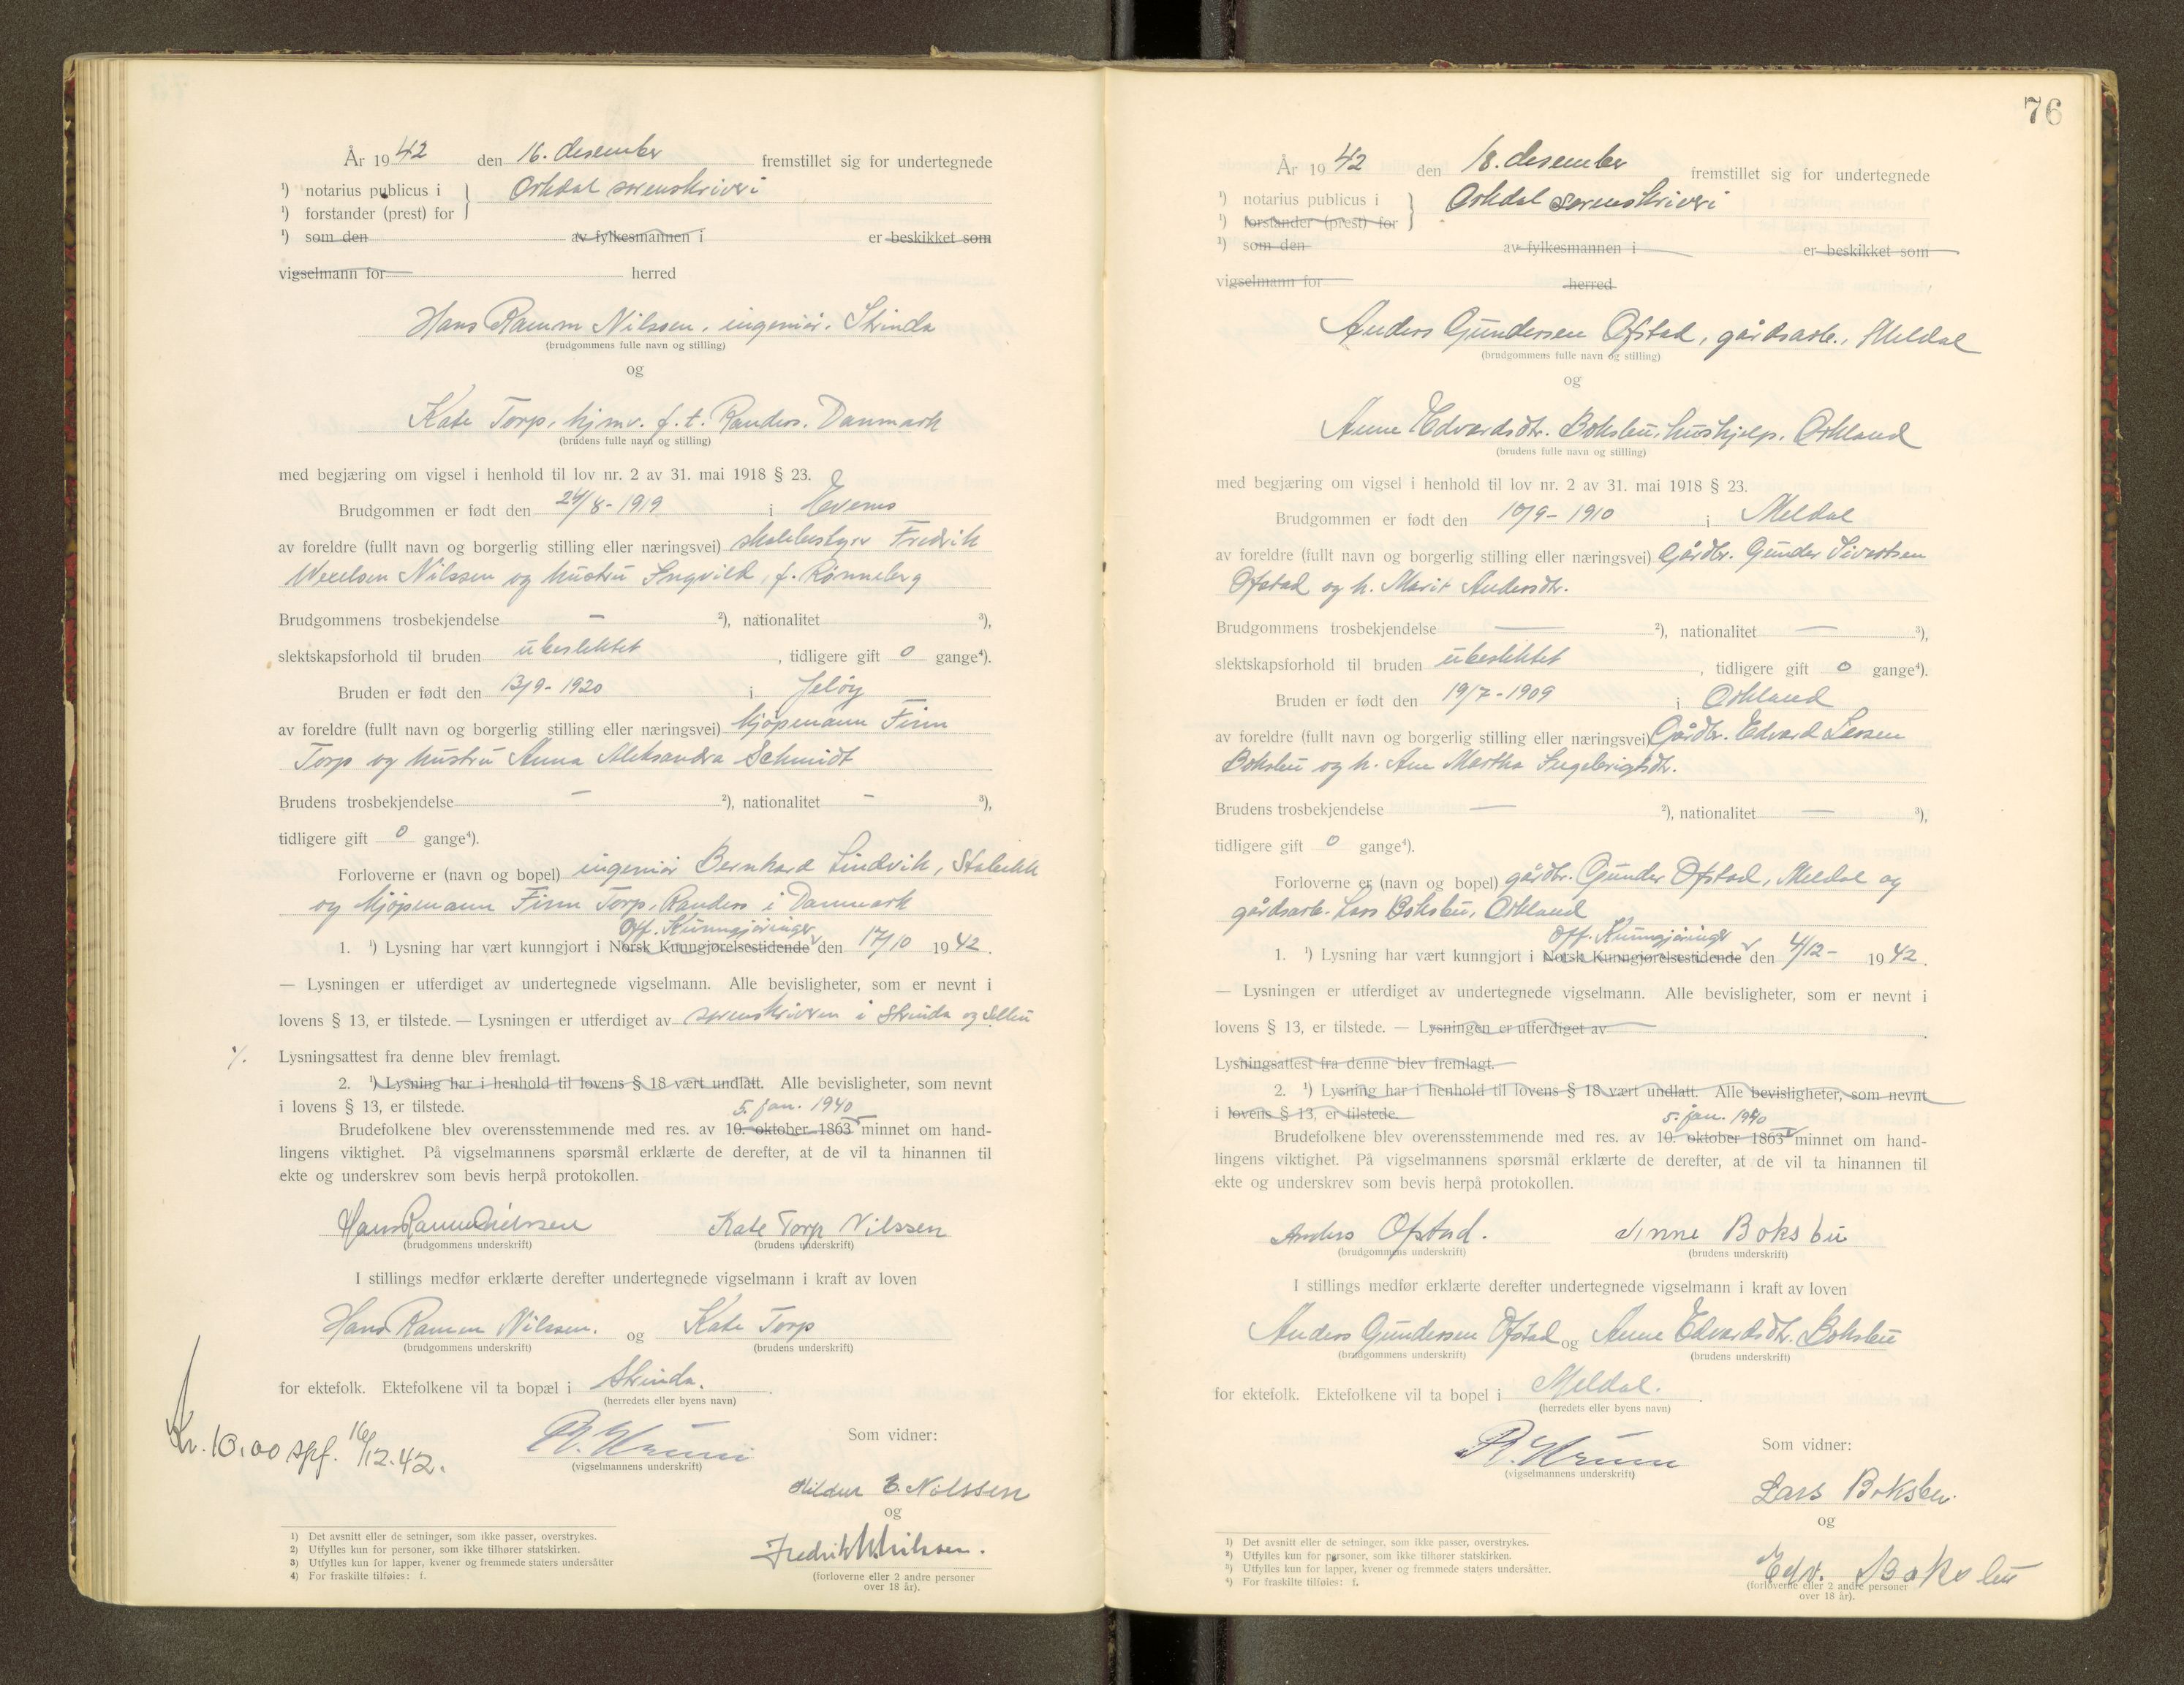 År 1942 den 16. desember fremstillet sig for undertegnede
¹) notarius publicus i } Orkdal sorenskriveri
¹) forstander (prest) for
¹) som den av fylkesmannen i er beskikket som
vigselmann for herred
Hans Ramm Nilssen, ingeniør. Strinda
(brudgommens fulle navn og stilling)
og
Kate Torp, hjmv. f. t. Randers. Danmark
(brudens fulle navn og stilling)
med begjæring om vigsel i henhold til lov nr. 2 av 31. mai 1918 § 23.
Brudgommen er født den 24/8-1919 i Evenes
av foreldre (fullt navn og borgerlig stilling eller næringsvei) skolebestyrer Fredrik
Wexelsen Nilssen og hustru Ingvild, f. Rønneberg
Brudgommens trosbekjendelse — ²), nationalitet ³),
slektskapsforhold til bruden ubeslektet, tidligere gift 0 gange⁴).
Bruden er født den 13/9-1920 i Jeløy
av foreldre (fullt navn og borgerlig stilling eller næringsvei) kjøpmann Finn
Torp og hustru Anna Aleksandra Schmidt
Brudens trosbekjendelse — ²), nationalitet — ³),
tidligere gift 0 gange⁴).
Forloverne er (navn og bopel) ingeniør Bernhard Lindvik, Stabekk
og kjøpmann Finn Torp, Randers i Danmark
Off. Kunngjøringer
1. ¹) Lysning har vært kunngjort i Norsk Kunngjørelsestidende den 17/10 1942.
— Lysningen er utferdiget av undertegnede vigselmann. Alle bevisligheter, som er nevnt i
lovens § 13, er tilstede. — Lysningen er utferdiget av sorenskriveren i Strinda og Selbu
./. Lysningsattest fra denne blev fremlagt.
2. ¹) Lysning har i henhold til lovens § 18 vært undlatt. Alle bevisligheter, som nevnt
i lovens § 13, er tilstede.
5. jan. 1940
Brudefolkene blev overensstemmende med res. av 10. oktober 1863 minnet om hand-
lingens viktighet. På vigselmannens spørsmål erklærte de derefter, at de vil ta hinannen til
ekte og underskrev som bevis herpå protokollen.
Hans Ramm Nilssen Kate Torp Nilssen
(brudgommens underskrift) (brudens underskrift)
I stillings medfør erklærte derefter undertegnede vigselmann i kraft av loven
Hans Ramm Nilssen. og Kate Torp
(brudgommens underskrift) (brudens underskrift)
for ektefolk. Ektefolkene vil ta bopæl i Strinda.
(herredets eller byens navn)
Kr. 10,00 spf. 16/12.42.
(vigselmannens underskrift)
Som vidner:
Hildur E. Nilssen
og
Fredrik W Nilssen.
(forloverne eller 2 andre personer
over 18 år).
1) Det avsnitt eller de setninger, som ikke passer, overstrykes.
2) Utfylles kun for personer, som ikke tilhører statskirken.
3) Utfylles kun for lapper, kvener og fremmede staters undersåtter
4) For fraskilte tilføies: f.
76
År 1942 den 18. desember fremstillet sig for undertegnede
¹) notarius publicus i } Orkdal sorenskriveri
¹) forstander (prest) for
¹) som den av fylkesmannen i er beskikket som
vigselmann for herred
Anders Gundersen Ofstad, gårdsarb., Meldal
(brudgommens fulle navn og stilling)
og
Anne Edvardsdtr. Boksbu, hushjelp, Orkland
(brudens fulle navn og stilling)
med begjæring om vigsel i henhold til lov nr. 2 av 31. mai 1918 § 23.
Brudgommen er født den 10/9-1910 i Meldal
av foreldre (fullt navn og borgerlig stilling eller næringsvei) Gårdbr. Gunder Sivertsen
Ofstad og h. Marit Andersdtr.
Brudgommens trosbekjendelse — ²), nationalitet — ³),
slektskapsforhold til bruden ubeslektet, tidligere gift 0 gange⁴).
Bruden er født den 19/7-1909 i Orkland
av foreldre (fullt navn og borgerlig stilling eller næringsvei) Gårdbr. Edvard Larsen
Boksbu og h. Ane Martha Ingebrigtsdtr.
Brudens trosbekjendelse — ²), nationalitet — ³),
tidligere gift 0 gange⁴).
Forloverne er (navn og bopel) gårdbr. Gunder Ofstad, Meldal og
gårdsarb. Lars Boksbu, Orkland
Off. Kunngjøringer
1. ¹) Lysning har vært kunngjort i Norsk Kunngjørelsestidende den 4/12- 1942.
— Lysningen er utferdiget av undertegnede vigselmann. Alle bevisligheter, som er nevnt i
lovens § 13, er tilstede. — Lysningen er utferdiget av
Lysningsattest fra denne blev fremlagt.
2. ¹) Lysning har i henhold til lovens § 18 vært undlatt. Alle bevisligheter, som nevnt
i lovens § 13, er tilstede.
5. jan. 1940
Brudefolkene blev overensstemmende med res. av 10. oktober 1863 minnet om hand-
lingens viktighet. På vigselmannens spørsmål erklærte de derefter, at de vil ta hinannen til
ekte og underskrev som bevis herpå protokollen.
Anders Ofstad. Anne Boksbu
(brudgommens underskrift) (brudens underskrift)
I stillings medfør erklærte derefter undertegnede vigselmann i kraft av loven
Anders Gundersen Ofstad og Anne Edvardsdtr. Boksbu
(brudgommens underskrift) (brudens underskrift)
for ektefolk. Ektefolkene vil ta bopel i Meldal.
(herredets eller byens navn)
(vigselmannens underskrift)
Som vidner:
Lars Boksbu.
og
Edv. Boksbu
(forloverne eller 2 andre personer
over 18 år).
1) Det avsnitt eller de setninger, som ikke passer, overstrykes.
2) Utfylles kun for personer, som ikke tilhører statskirken.
3) Utfylles kun for lapper, kvener og fremmede staters undersåtter.
4) For fraskilte tilføies: f.